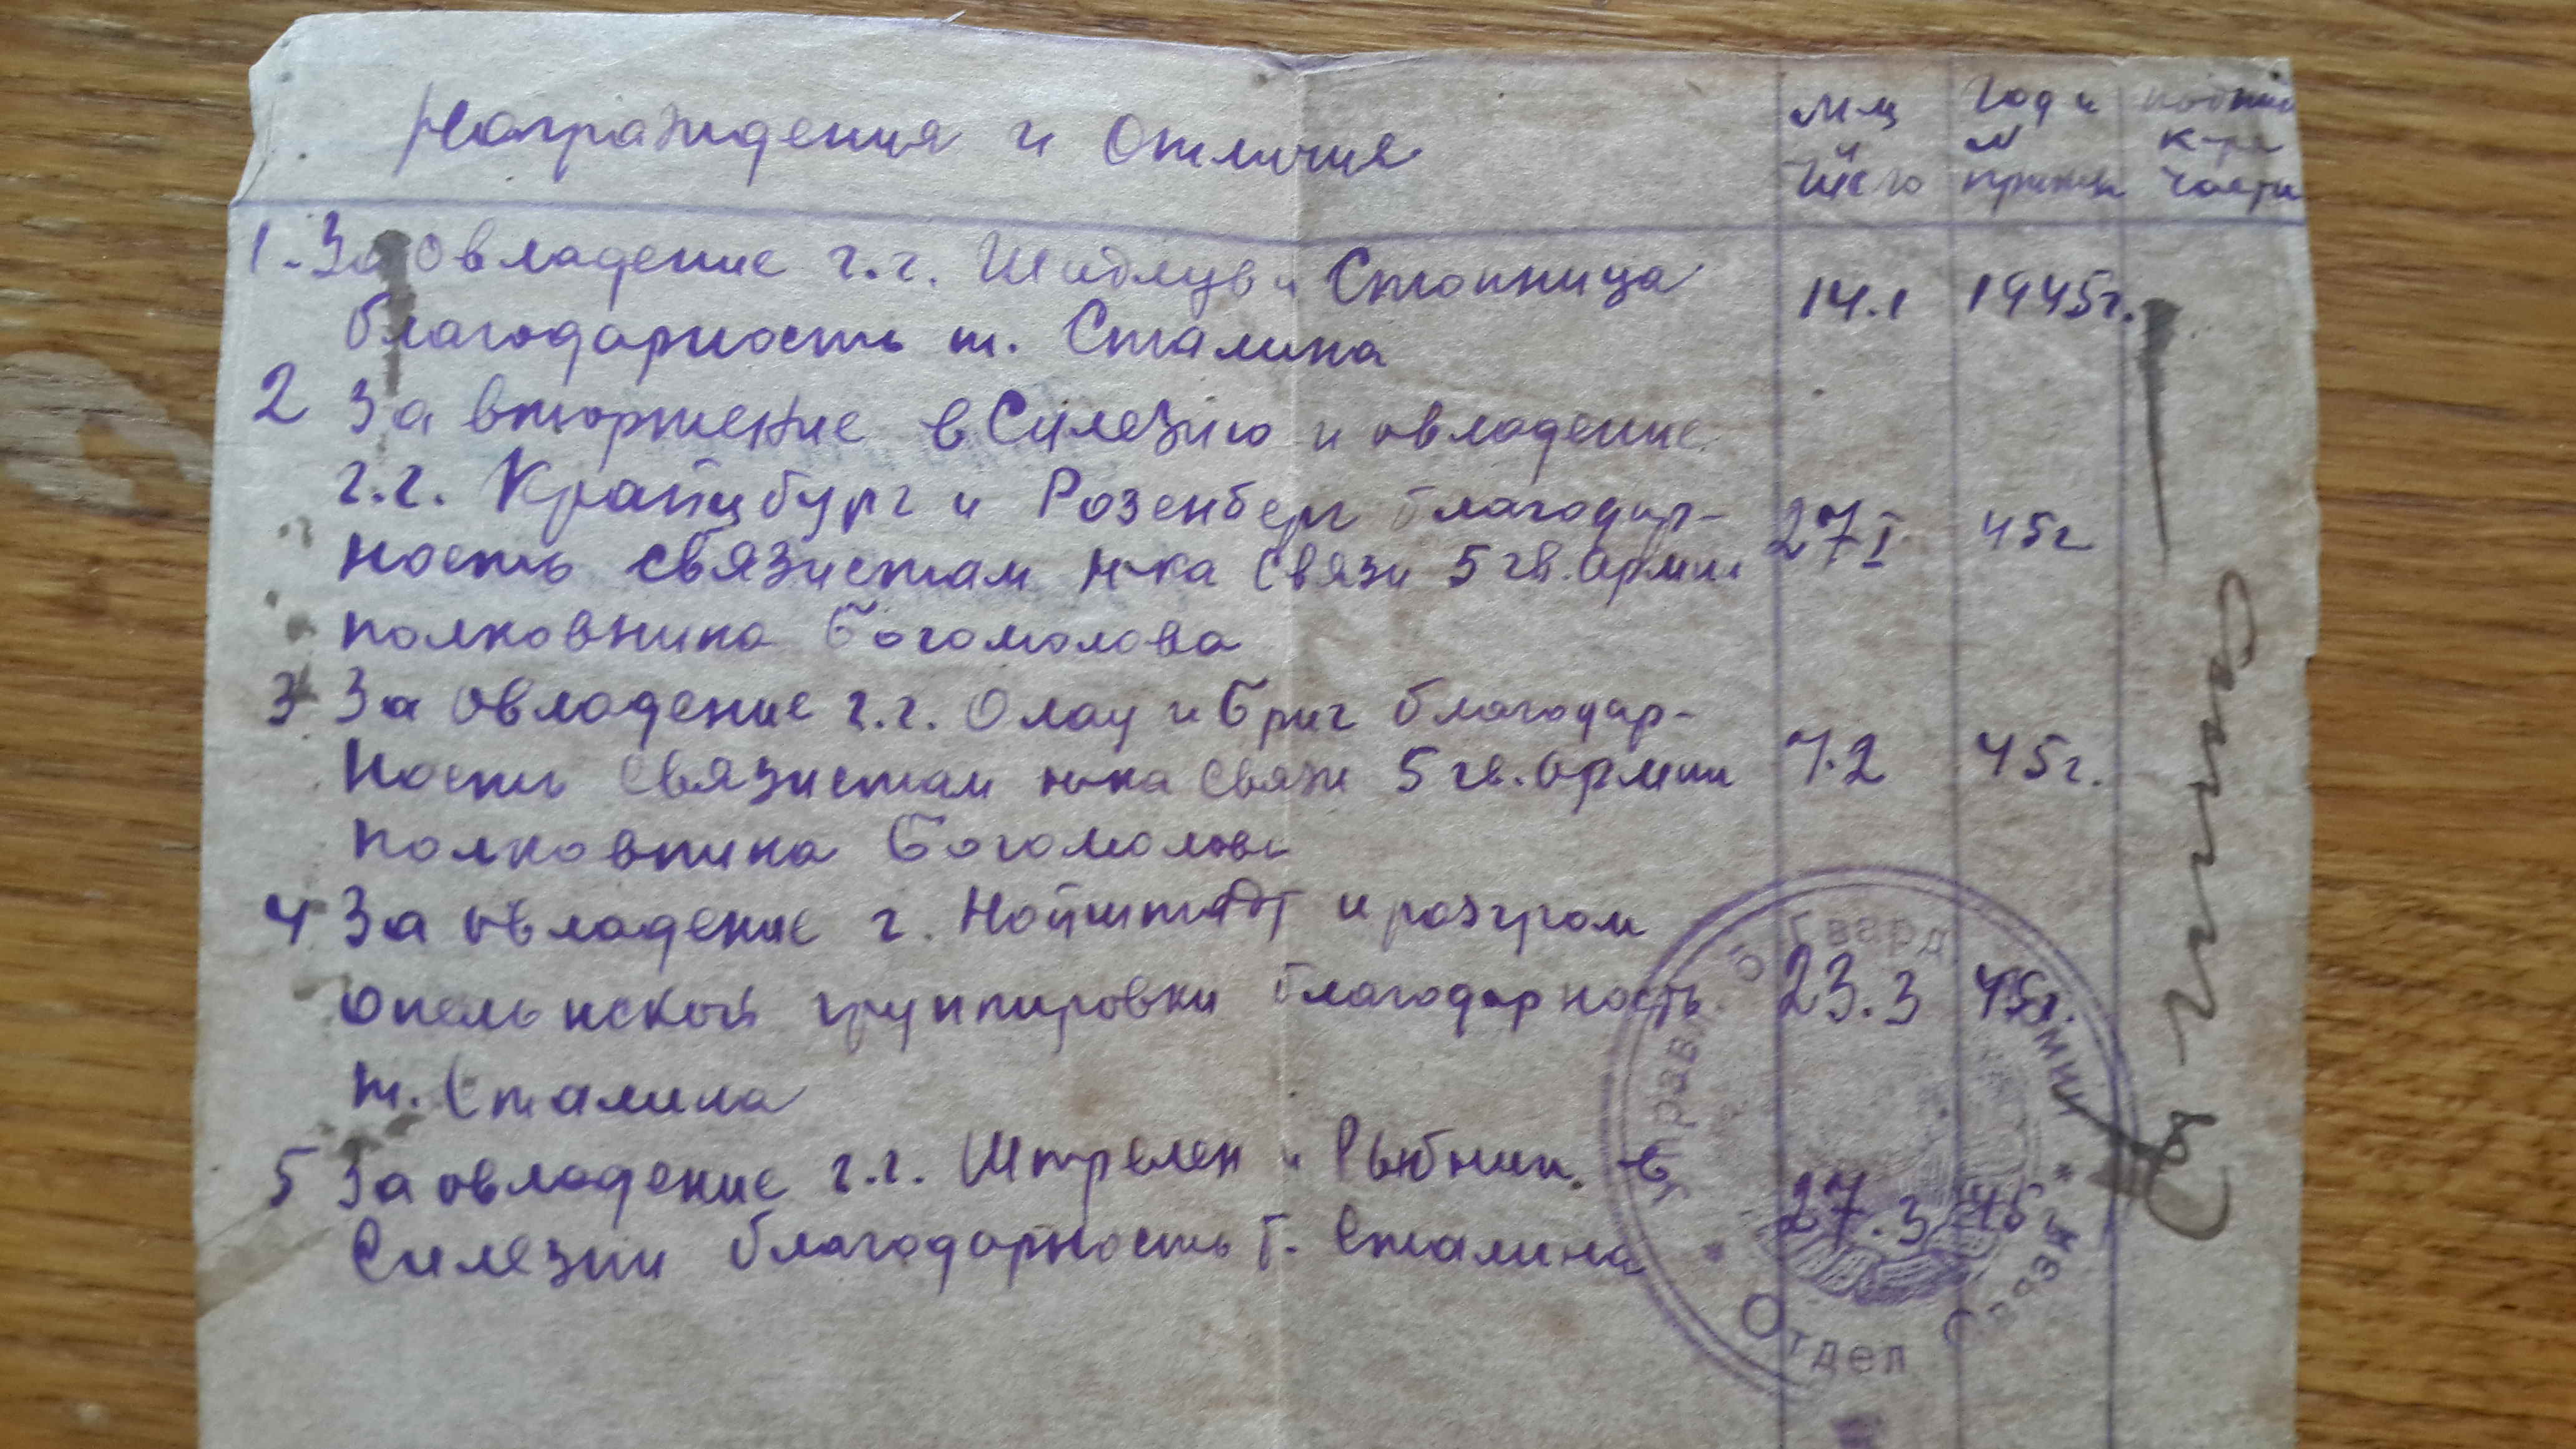 Награждения и Отличия
М-ц и число
Год и № приказа
подпись к-ра части
1. За овладение г.г. Шидлув и Стопница
благодарность т. Сталина
14.1 1945г.
2 За вторжение в Силезию и овладение
г.г. Крайцбург и Розенберг благодар-
ность связистам н-ка связи 5 гв. армии
27 I 45г
полковника Богомолова
3 За овладение г.г. Олау и Бриг благодар-
ность связистам н-ка связи 5 гв. армии
7.2 45г.
полковника Богомолова
4 За овладение г. Нойштадт и разгром
опельнской группировки благодарность
23.3 45г.
т. Сталина
5 За овладение г.г. Штрелен и Рыбник в
Силезии благодарность т. Сталина
27.3 45
Управл. 5 Гвард. Армии
* Отдел Связи *